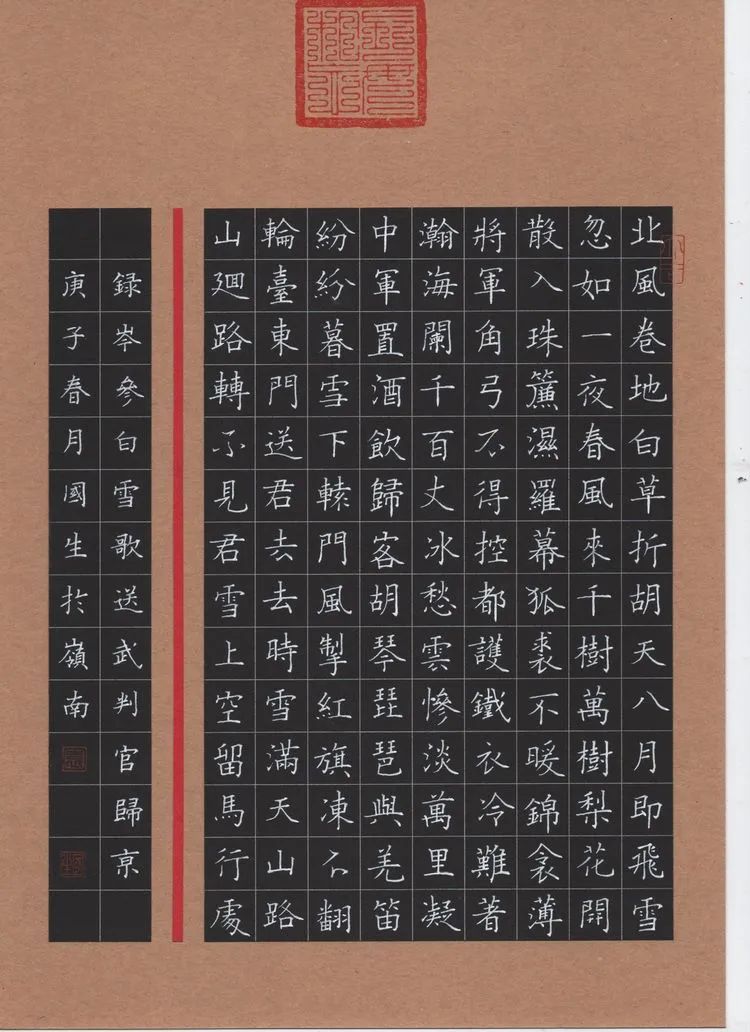 北風卷地白草折胡天八月即飛雪
忽如一夜春風來千樹萬樹梨花開
散入珠簾濕羅幕狐裘不暖錦衾薄
將軍角弓不得控都護鐵衣冷難著
瀚海闌干百丈冰愁雲慘淡萬里凝
中軍置酒飲歸客胡琴琵琶與羌笛
紛紛暮雪下轅門風掣紅旗凍不翻
輪臺東門送君去去時雪滿天山路
山迴路轉不見君雪上空留馬行處
録岑參白雪歌送武判官歸京
庚子春月國生於嶺南